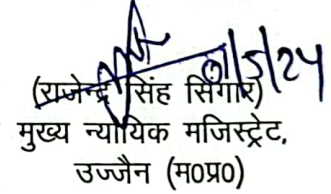 01/5/24
(राजेन्द्र सिंह सिंगार)
मुख्य न्यायिक मजिस्ट्रेट,
उज्जैन (म०प्र०)